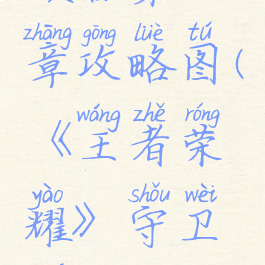 zhāng gōng lüè tú
章攻略图(
wáng zhě róng
《王者荣
yào shǒu wèi
耀》守卫